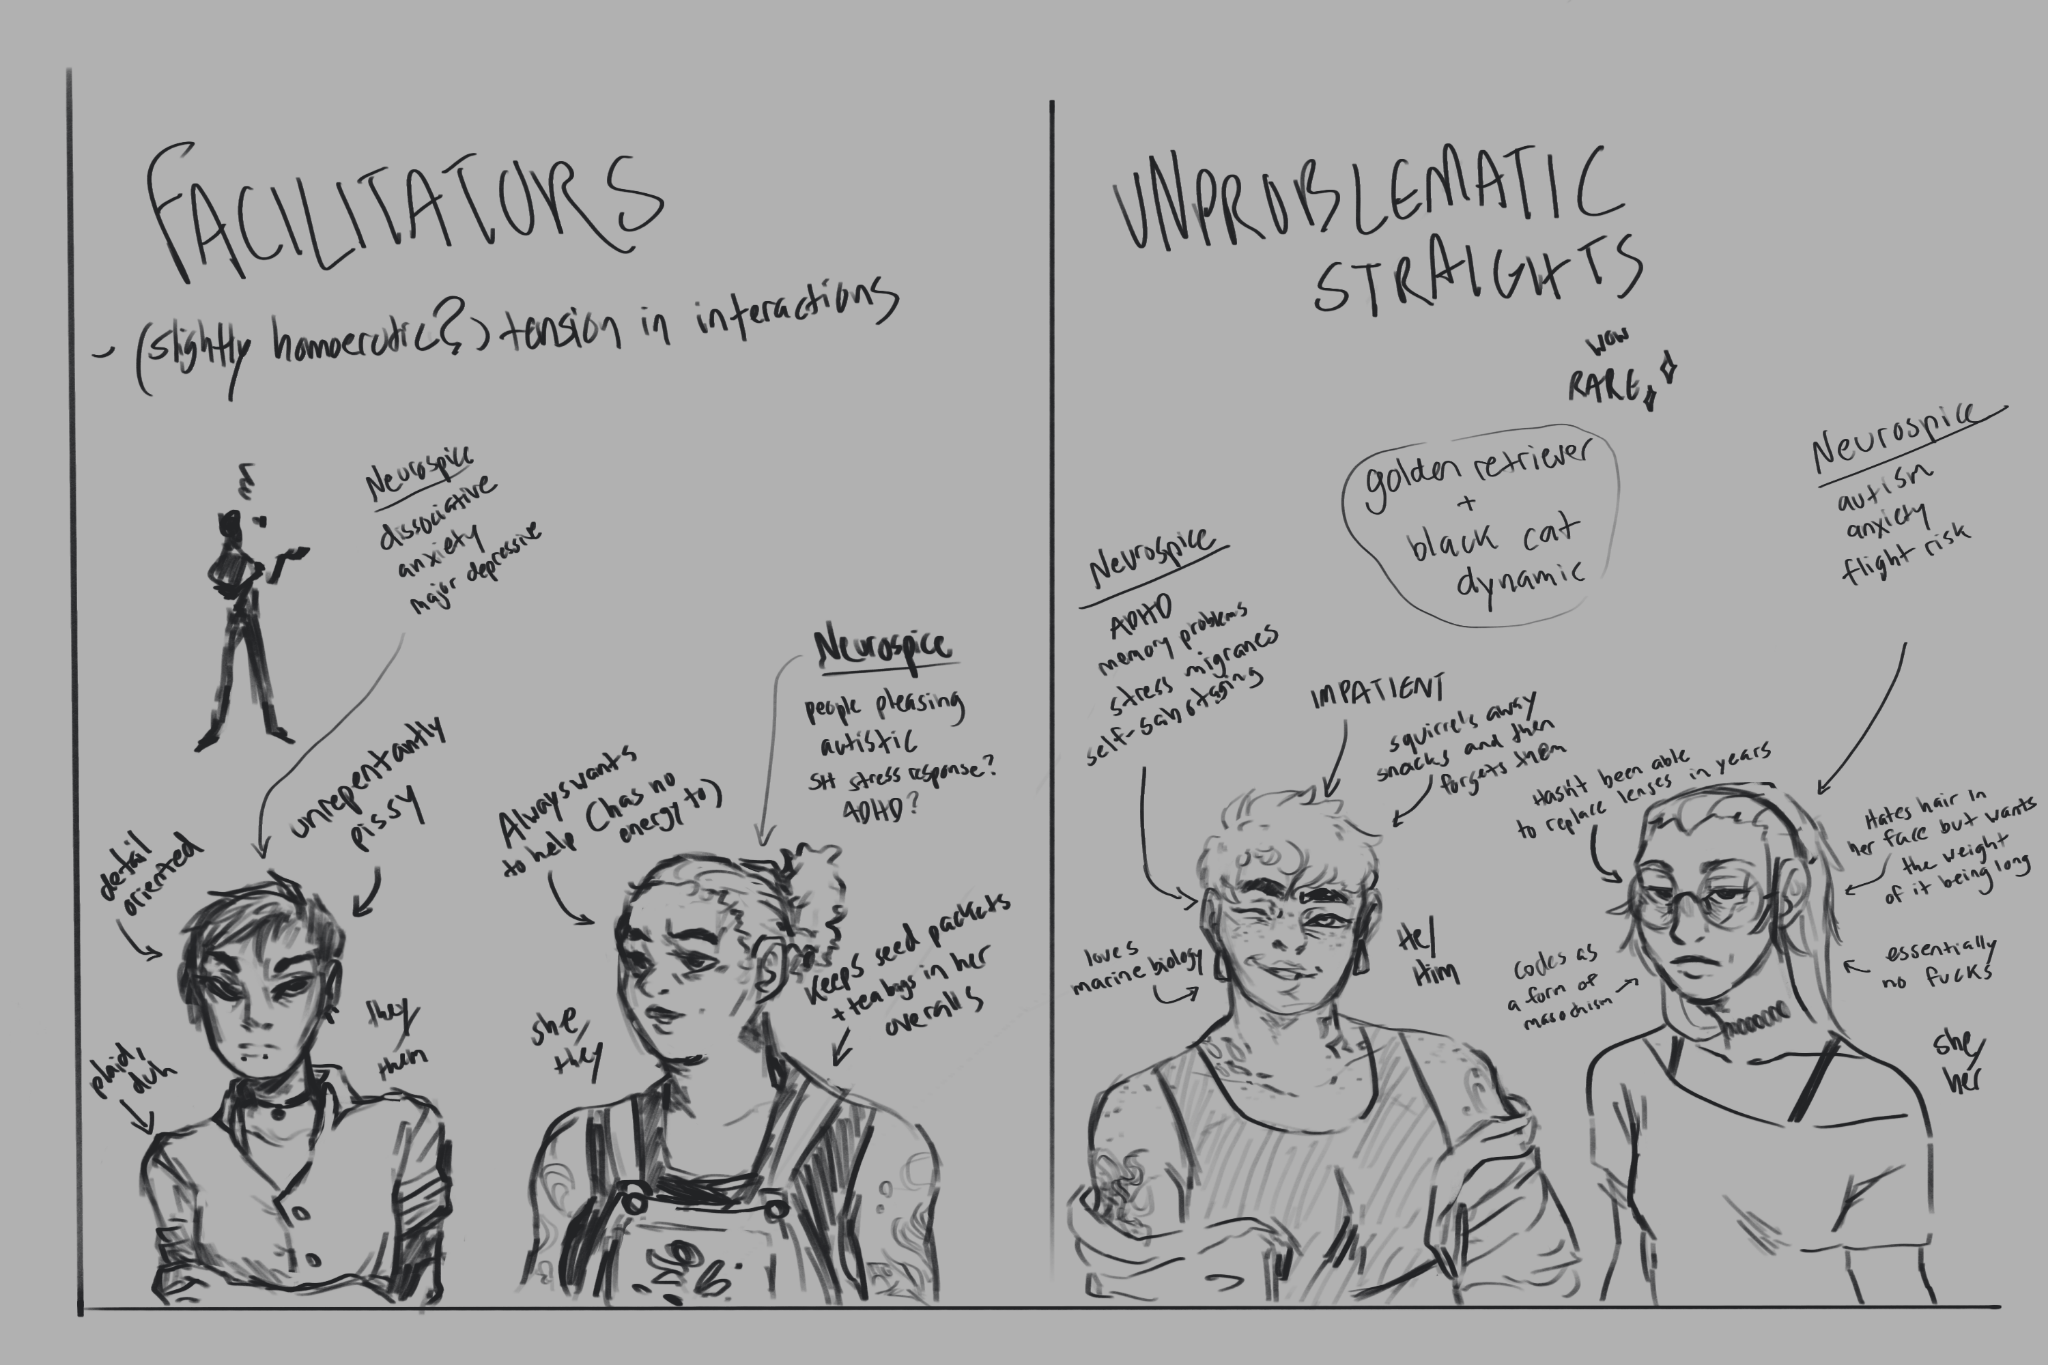 FACILITATORS
- (slightly homoerotic?) tension in interactions
Neurospice
dissociative
anxiety
major depressive
unrepentantly
pissy
detail
oriented
they/
them
plaid,
duh
Neurospice
people pleasing
autistic
SH stress response?
ADHD?
Always wants
to help (has no
energy to)
she/
they
Keeps seed packets
+ tea bags in her
overalls
UNPROBLEMATIC
STRAIGHTS
WOW
RARE
golden retriever
+
black cat
dynamic
Neurospice
ADHD
memory problems
stress migranes
self-sabotaging
IMPATIENT
squirrels away
snacks and then
forgets them
loves
marine biology
He/
Him
Neurospice
autism
anxiety
flight risk
Hasn't been able
to replace lenses in years
Hates hair in
her face but wants
the weight
of it being long
codes as
a form of
masochism
essentially
no fucks
she/
her